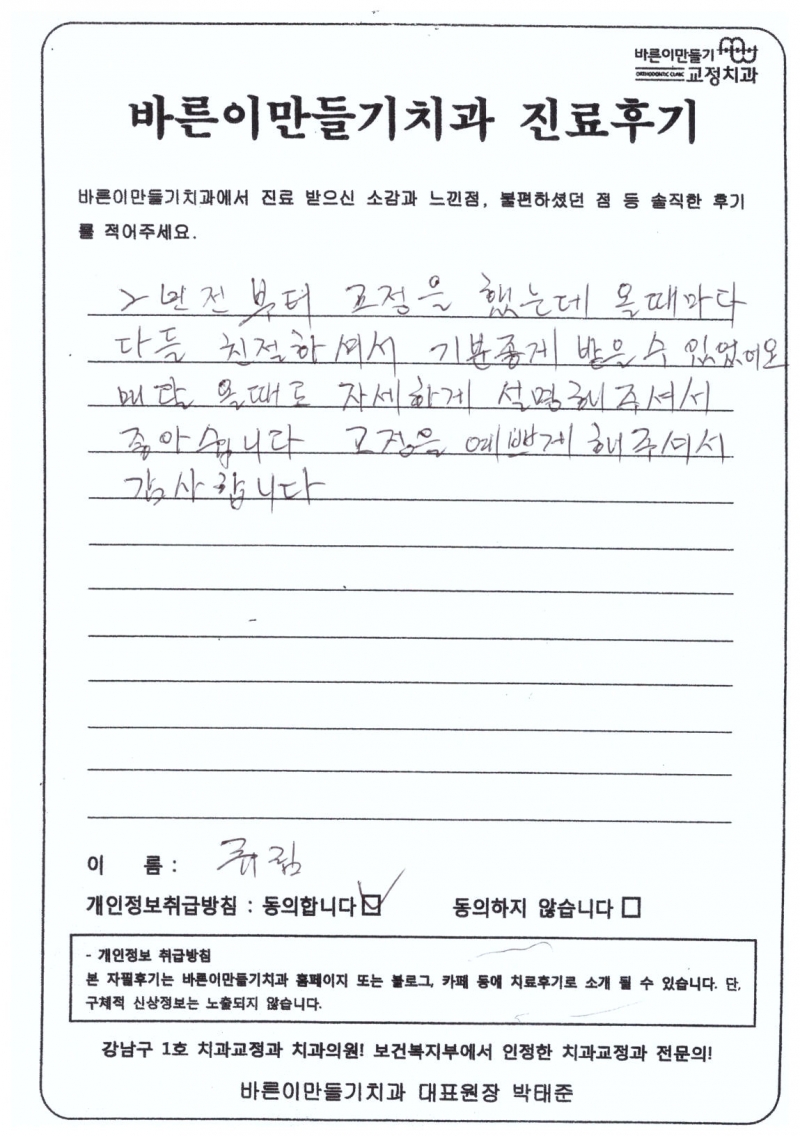 바른이만들기
ORTHODONTIC CLINIC 교정치과
바른이만들기치과 진료후기
바른이만들기치과에서 진료 받으신 소감과 느낀점, 불편하셨던 점 등 솔직한 후기
를 적어주세요.
2년전부터 교정을 했는데 올때마다
다들 친절하셔서 기분좋게 받을수 있었어요
매달 올때도 자세하게 설명해주셔서
좋아습니다 교정을 예쁘게 해주셔서
감사합니다
이 름 :
개인정보취급방침 : 동의합니다 ☑ 동의하지 않습니다 □
- 개인정보 취급방침
본 자필후기는 바른이만들기치과 홈페이지 또는 블로그, 카페 등에 치료후기로 소개 될 수 있습니다. 단,
구체적 신상정보는 노출되지 않습니다.
강남구 1호 치과교정과 치과의원! 보건복지부에서 인정한 치과교정과 전문의!
바른이만들기치과 대표원장 박태준